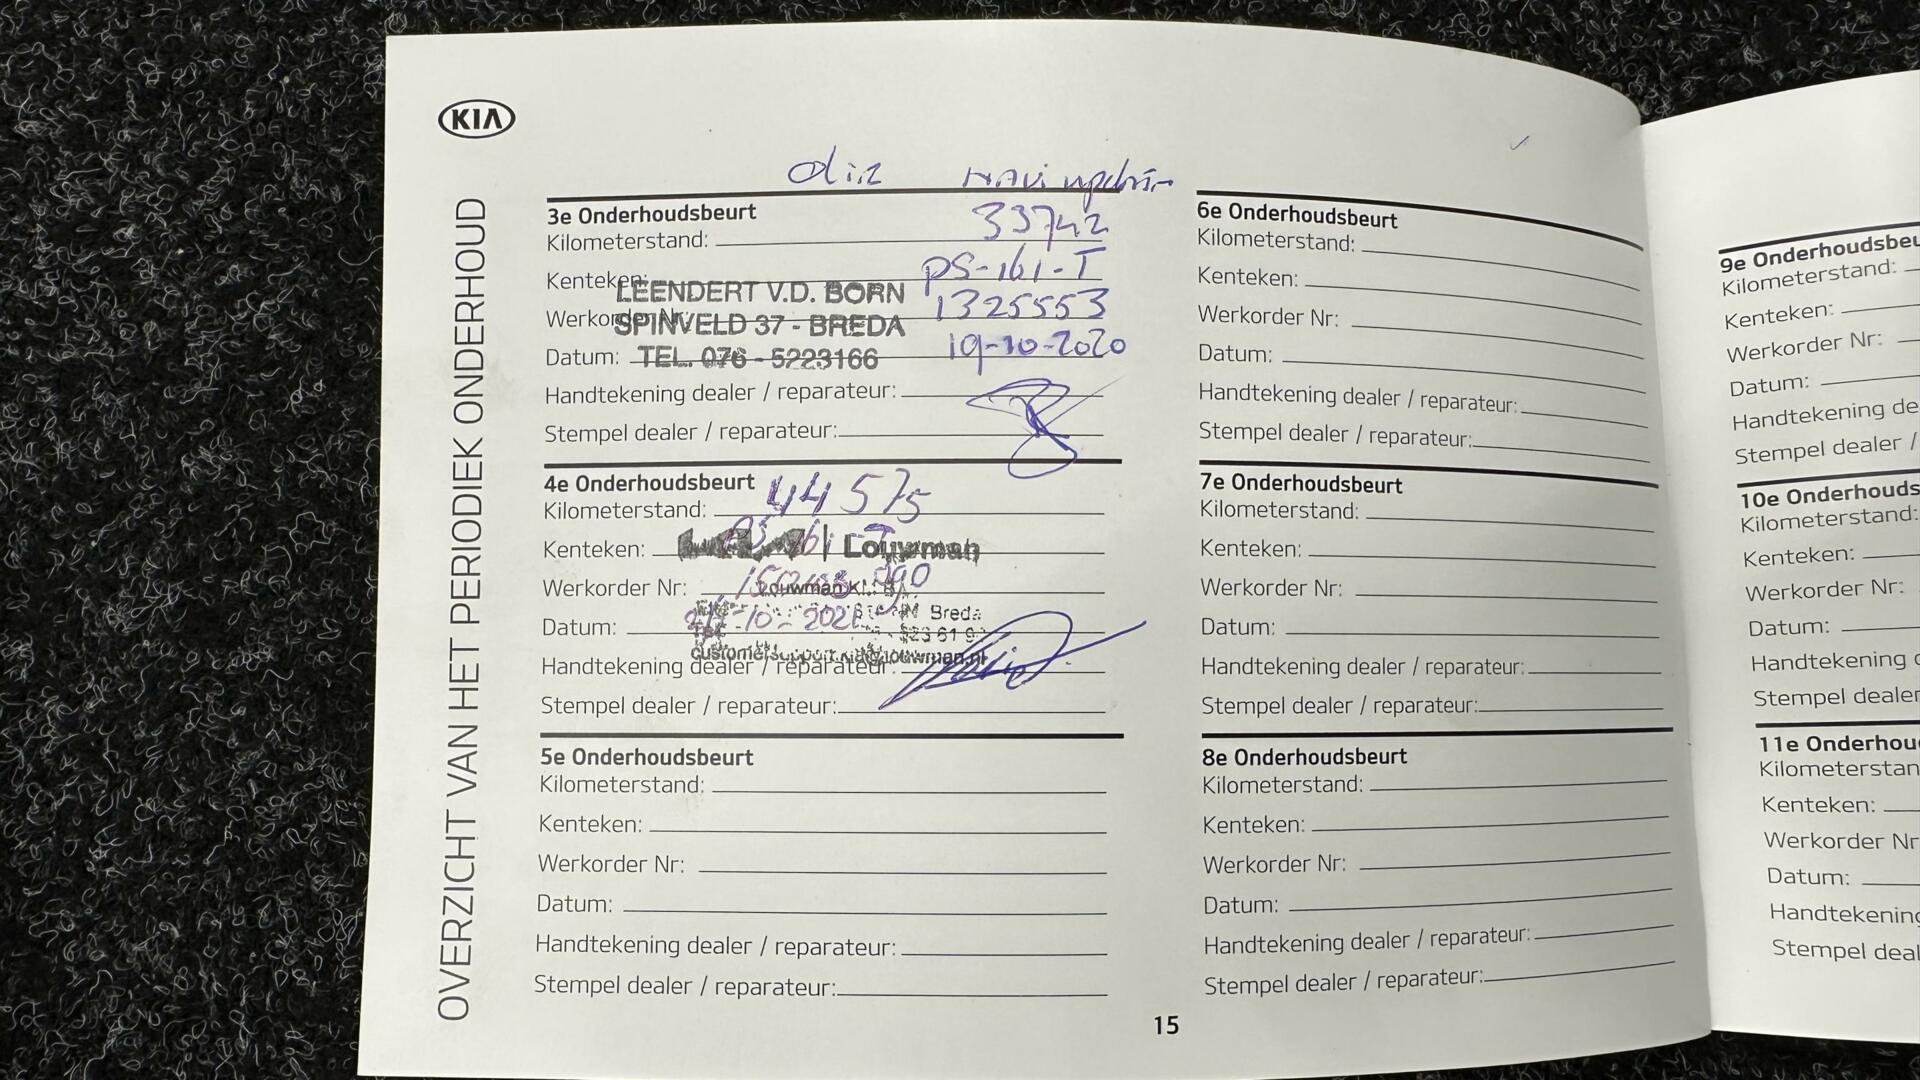 KIA
OVERZICHT VAN HET PERIODIEK ONDERHOUD
3e Onderhoudsbeurt
Kilometerstand: 33742
Kenteken: PS-161-T
Werkorder Nr: 1325553
Datum: 19-10-2020
LEENDERT V.D. BORN
SPINVELD 37 - BREDA
TEL. 076 - 5223166
Handtekening dealer / reparateur:
Stempel dealer / reparateur:
4e Onderhoudsbeurt
Kilometerstand: 44575
Kenteken:
Louwman
Werkorder Nr:
Datum: -10-2021
Breda
customersupport.kia@louwman.nl
Handtekening dealer / reparateur:
Stempel dealer / reparateur:
5e Onderhoudsbeurt
Kilometerstand:
Kenteken:
Werkorder Nr:
Datum:
Handtekening dealer / reparateur:
Stempel dealer / reparateur:
6e Onderhoudsbeurt
Kilometerstand:
Kenteken:
Werkorder Nr:
Datum:
Handtekening dealer / reparateur:
Stempel dealer / reparateur:
7e Onderhoudsbeurt
Kilometerstand:
Kenteken:
Werkorder Nr:
Datum:
Handtekening dealer / reparateur:
Stempel dealer / reparateur:
8e Onderhoudsbeurt
Kilometerstand:
Kenteken:
Werkorder Nr:
Datum:
Handtekening dealer / reparateur:
Stempel dealer / reparateur:
15
9e Onderhoudsbeu
Kilometerstand:
Kenteken:
Werkorder Nr:
Datum:
Handtekening de
Stempel dealer /
10e Onderhouds
Kilometerstand:
Kenteken:
Werkorder Nr:
Datum:
Handtekening
Stempel dealer
11e Onderhou
Kilometerstan
Kenteken:
Werkorder Nr
Datum:
Handtekening
Stempel deal